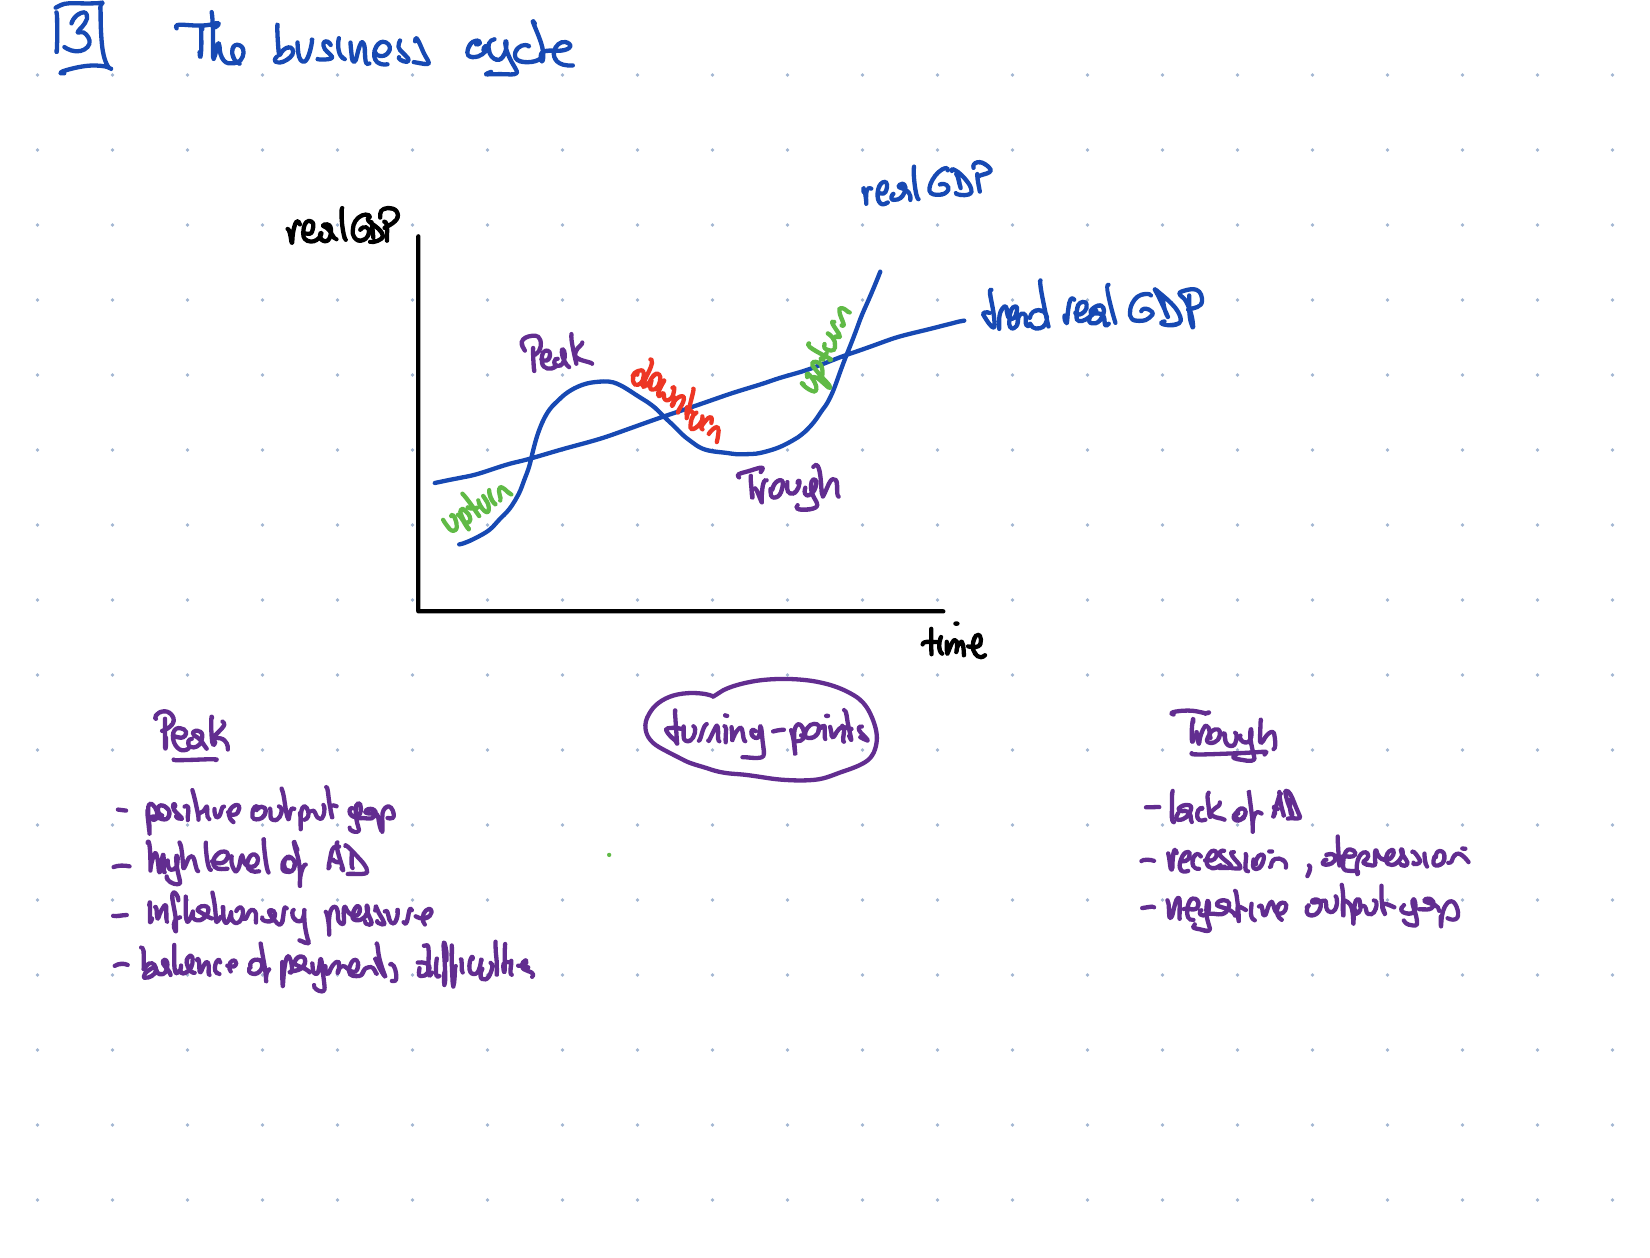 3 The business cycle
real GDP
real GDP
trend real GDP
Peak
downturn
upturn
upturn
Trough
time
Peak
turning-points
Trough
- positive output gap
- high level of AD
- inflationary pressure
- balance of payments difficulties
- lack of AD
- recession, depression
- negative output gap